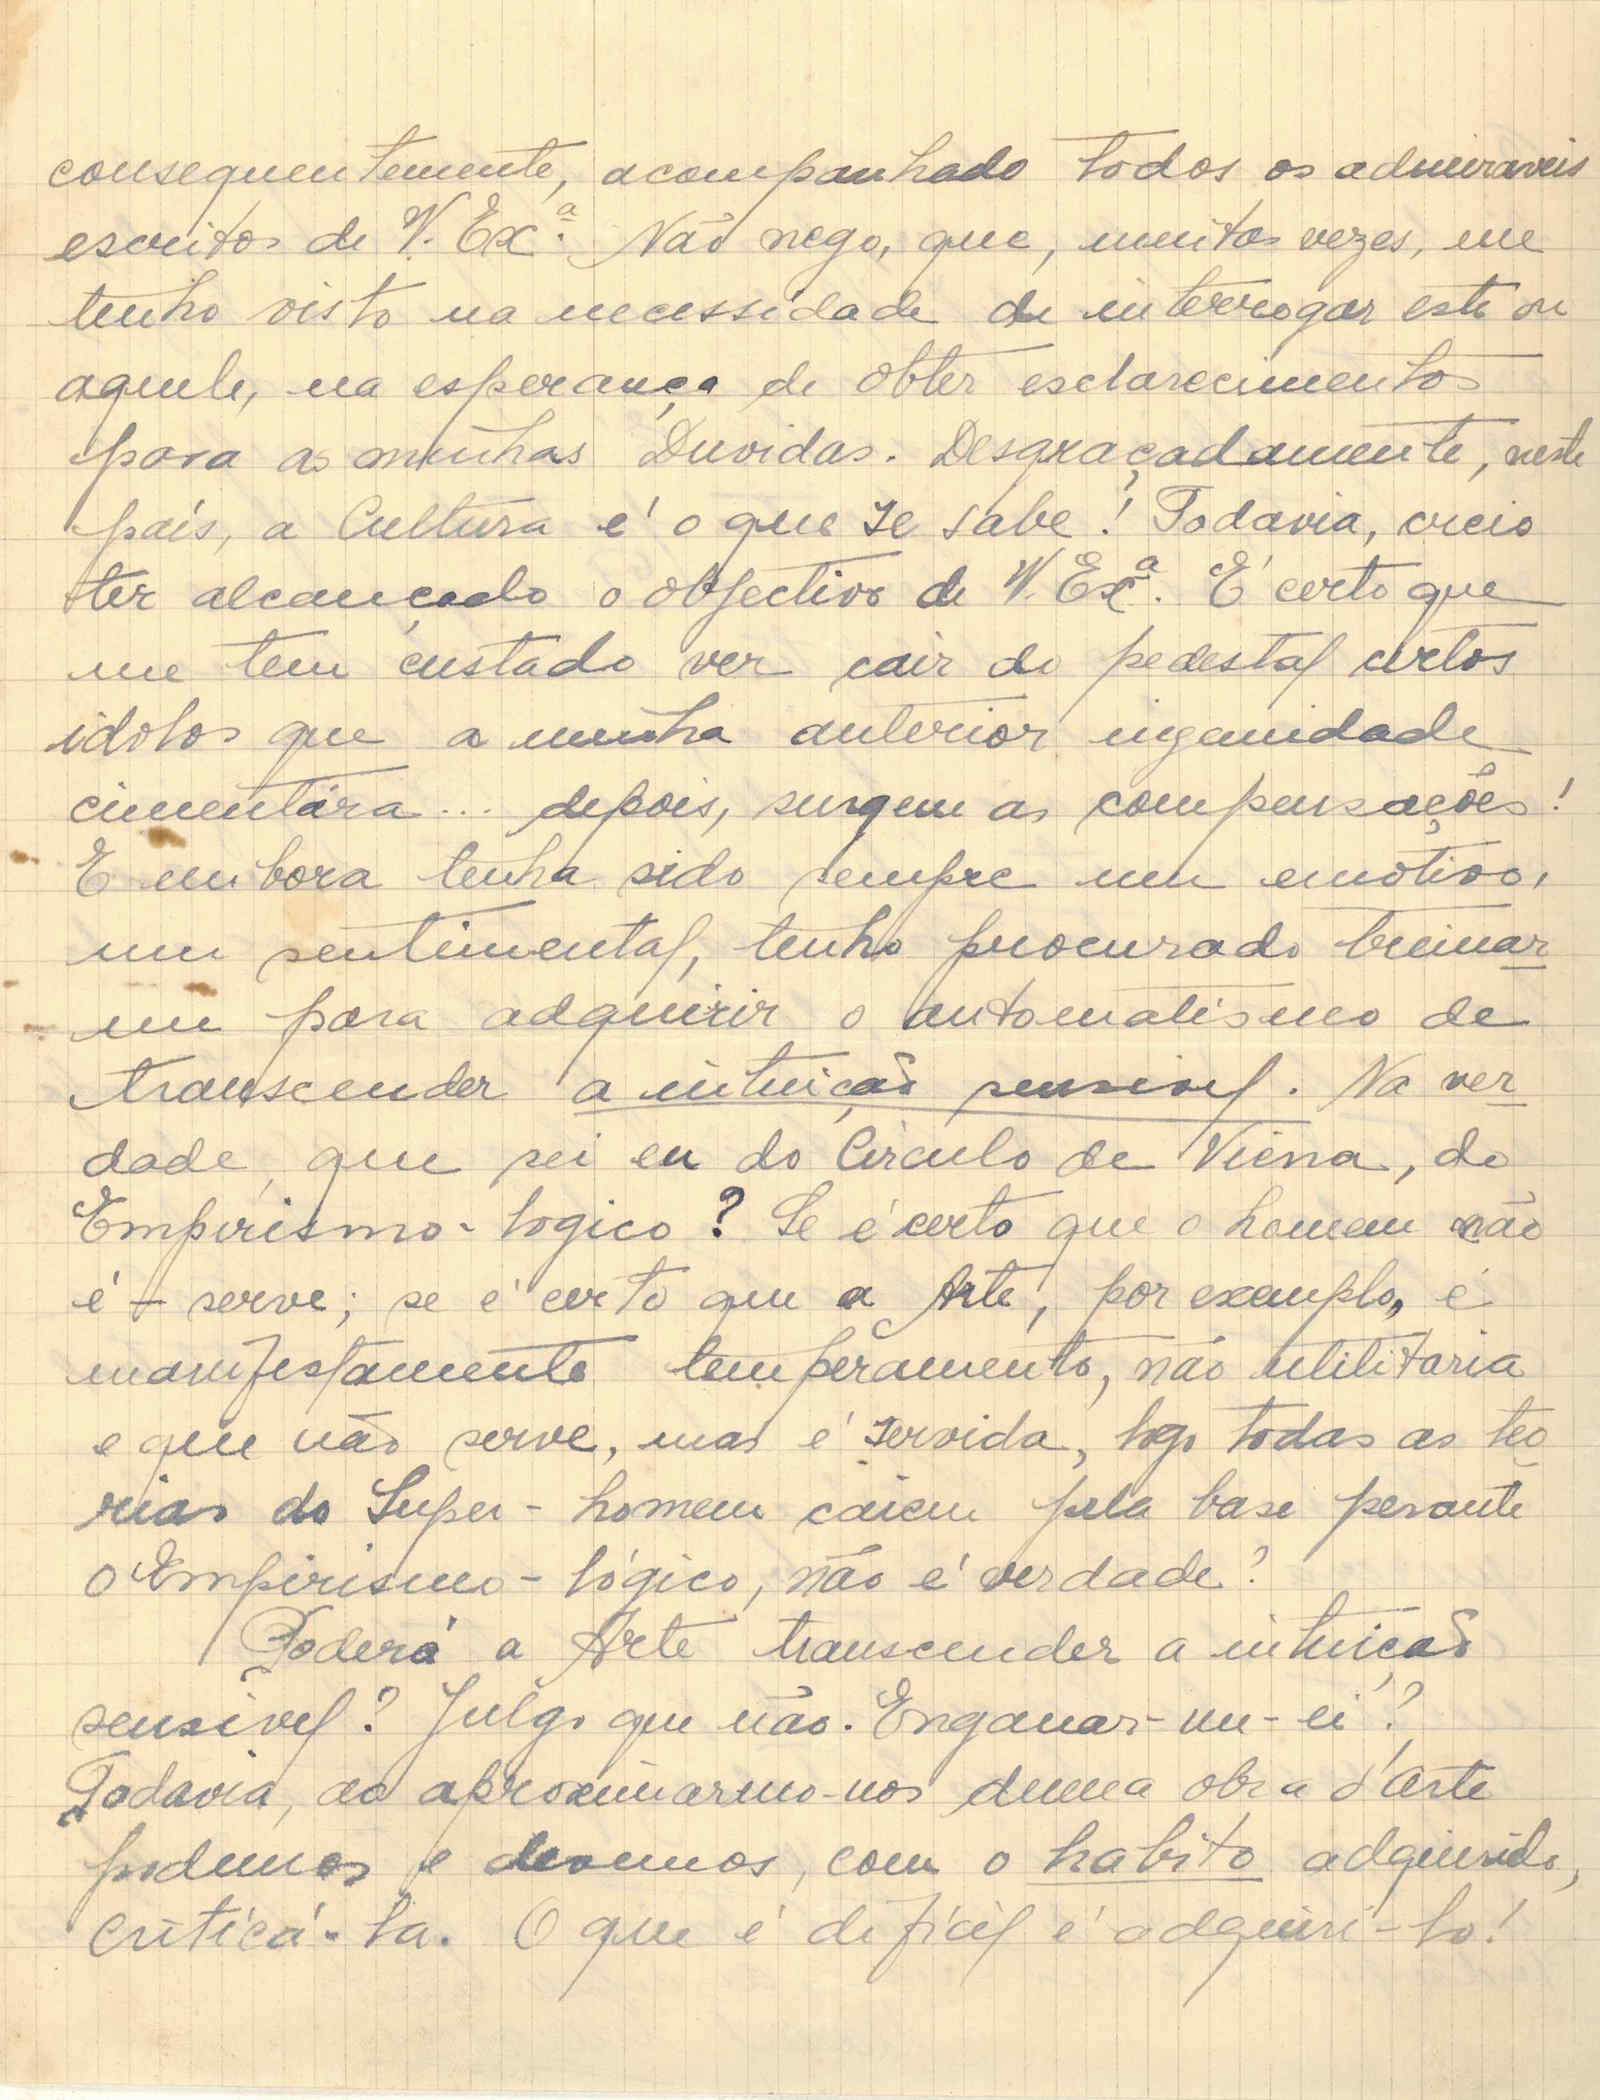 consequentemente, acompanhado todos os admiraveis
escritos de V. Ex.ª Não nego, que, muitas vezes, me
tenho visto na necessidade de interrogar este ou
aquele, na esperança de obter esclarecimentos
para as minhas Duvidas. Desgraçadamente, neste
país, a Cultura é o que se sabe! Todavia, creio
ter alcançado o objectivo de V. Exª. É certo que
me tem custado ver cair do pedestal certos
idolos que a minha anterior ingenuidade
cimentára... depois, surgem as compensações!
E embora tenha sido sempre um emotivo,
um sentimental, tenho procurado treinar-
me para adquirir o automatismo de
transcender a intuição sensivel. Na ver-
dade, que sei eu do Circulo de Viena, do
Empirismo-logico? Se é certo que o homem não
é - serve; se é certo que a Arte, por exemplo, é
manifestamente temperamento, não utilitaria
e que não serve, mas é servida, logo todas as teo-
rias do Super-homem cáiem pela base perante
o Empirismo-lógico, não é verdade?
Poderá a Arte transcender a intuição
sensivel? Julgo que não. Enganar-me-ei?
Todavia, ao aproximarmo-nos duma obra d'arte
podemos e devemos, com o habito adquirido,
criticá-la. O que é dificil é adquiri-lo!